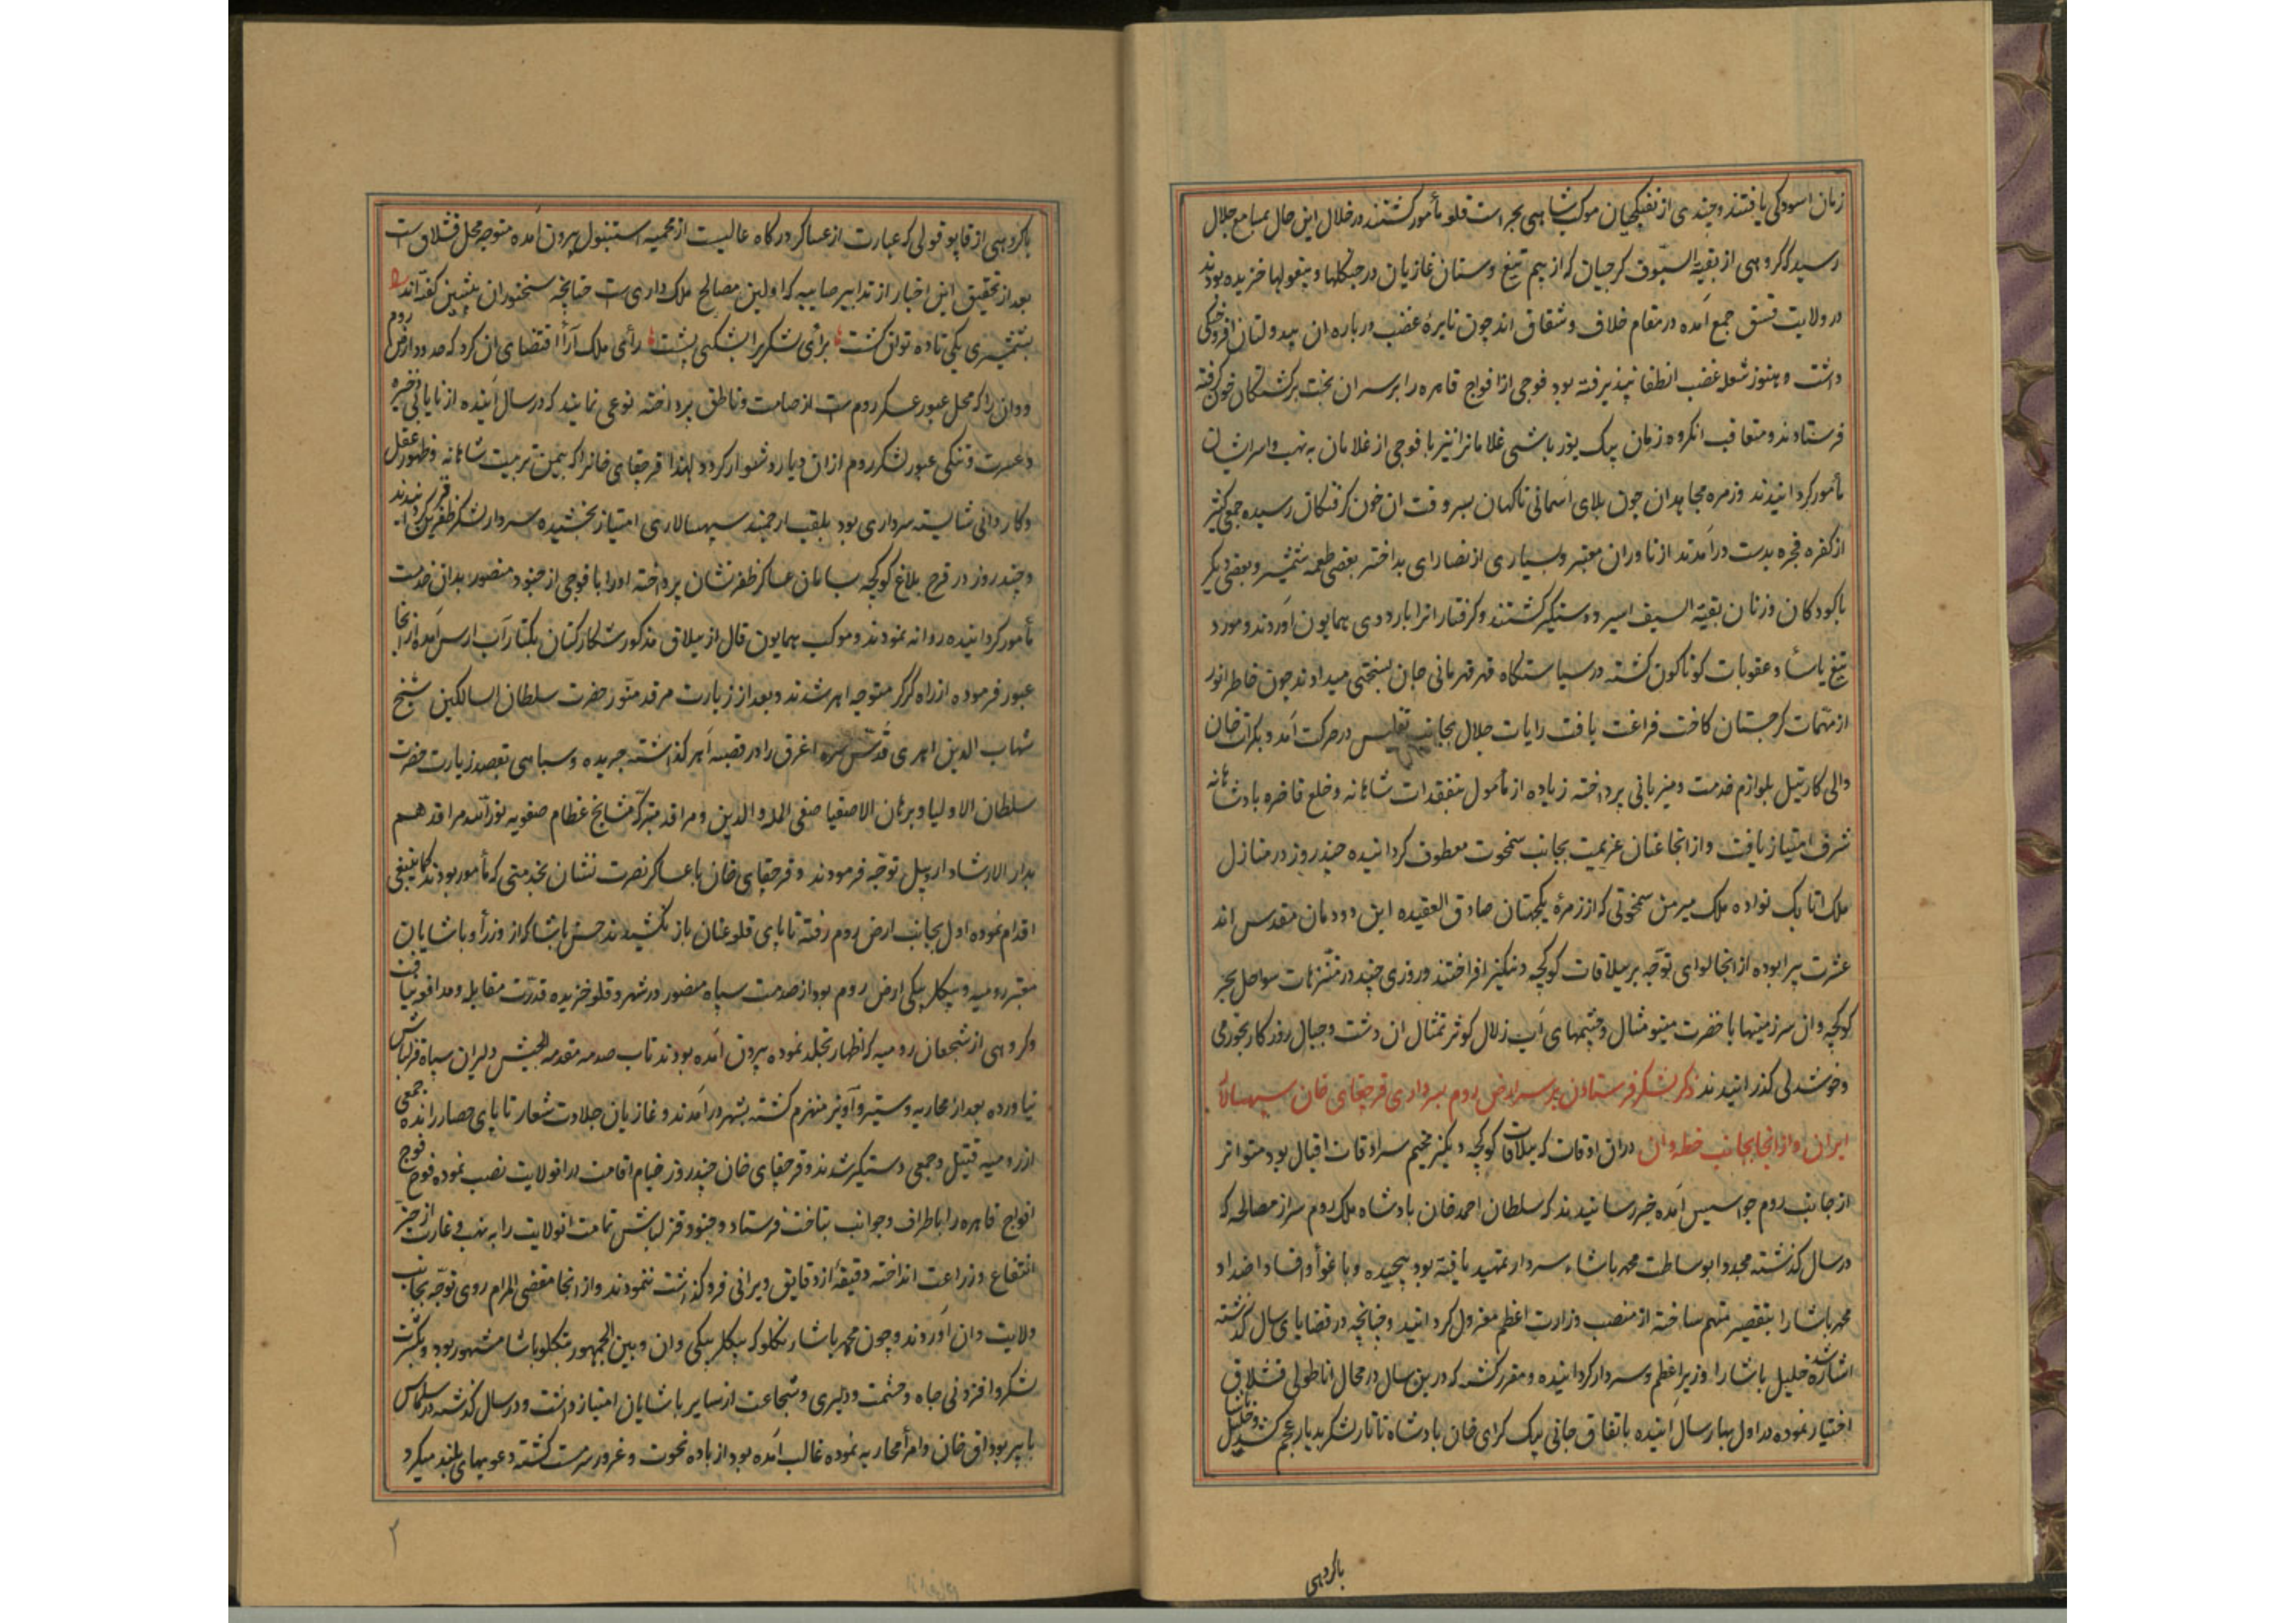 زمان اسودکی یافتند و چندی از تفنکچیان موکب شاهی بحراست قلعه مأمور کشتند در خلال این حال بمسامع جلال
رسید که کروهی از بقیة السیوف کرجیان که از بیم تیغ و سنان غازیان در جنکلها و بیغولها خزیده بودند
در ولایت قسق جمع آمده در مقام خلاف و شقاق اند چون نایرهٔ غضب درباره ان بیدولتان افروختکی
داشت و هنوز شعله غضب انطفا نپذیرفته بود فوجی از افواج قاهره را بر سر ان بخت برکشتکان خون کرفته
فرستادند و متعاقب انکروه زمان بیک یوزباشی غلامانرا نیز با فوجی از غلامان به نهب و اسر ایشان
مأمور کردانیدند و زمره مجاهدان چون بلای آسمانی ناکهان بسر وقت ان خون کرفتکان رسیده جمعی کثیر
از کفره فجره بدست درآمدند از ناوران معتبر و بسیاری از نصارای پداخته بعضی طعمه شمشیر و بعضی دیکر
با کودکان و زنان بقیة السیف اسیر و دستکیر کشتند و کرفتارانرا باردوی همایون آوردند و مورد
تیغ یاسا و عقوبات کوناکون کشته در سیاستکاه قهر قهرمانی جان بسختی میدادند چون خاطر انور
از مهمات کرجستان کاخت فراغت یافت رایات جلال بجانب تفلیس در حرکت آمد و بکرات خان
والی کارتیل بلوازم خدمت و میزبانی پرداخته زیاده از مأمول بتفقدات شاهانه و خلع فاخره پادشاهانه
شرف امتیاز یافت و از انجا عنان عزیمت بجانب سمخوت معطوف کردانیده چند روز در منازل
ملک اتابک نواده ملک میرمن سمخوتی که از زمرهٔ یکجهتان صادق العقیده این دودمان مقدس اند
عشرت پیرا بوده از انجا لوای توجه بر ییلاقات کوکچه دنکیز افراختند و روزی چند در متنزهات سواحل بحر
کوکچه و ان سرزمینها با خضرت مینو مثال و چشمهای آب زلال کوثر تمثال ان دشت و جبال روزکار بخرمی
و خوشدلی کذرانیدند ذکر لشکر فرستادن بر سر ارض روم بسرداری قرچقای خان سپهسالار
ایران و از انجا بجانب خطه وان در ان اوقات که ییلاقات کوکچه دیکز مخیم سرادقات اقبال بود متواتر
از جانب روم جواسیس آمده خبر رسانیدند که سلطان احمد خان پادشاه ملک روم سر از مصالحه که
در سال کذشته مجددا بوساطت محمد پاشاء سردار تمهید یافته بود پیچیده و باغوا و افساد اضداد
محمد پاشا را بتقصیر متهم ساخته از منصب وزارت اعظم معزول کردانید و چنانچه در قضایای سال کذشته
اشاره شد خلیل پاشا را وزیر اعظم و سردار کردانیده و مقرر کشته که درین سال در محال اناطولی قشلاق
اختیار نموده در اول بهار سال اینده باتفاق جانی بیک کرای خان پادشاه تاتار لشکر بدیار عجم کشد و خلیل پاشا
باکروهی
باکروهی از قاپو قولی که عبارت از عساکر درکاه عالیست از محمیه استنبول بیرون آمده متوجه محل قشلاق است
بعد از تحقیق این اخبار از تدابیر صایبه که اولین مصالح ملک داری ست چنانچه سخنوران پیشین کفته اند
بشمشیری یکی تا ده توان کشت برأی لشکریرا بشکنی پشت رأی ملک آرا اقتضای ان کرد که حدود ارض روم
و وان را که محل عبور عسکر روم ست از صامت و ناطق پرداخته نوعی نمایند که در سال آینده از نایابی ذخیره
و عسرت و تنکی عبور لشکر روم از ان دیار دشوار کردد لهذا قرچقای خانرا که بیمن تربیت شاهانه و ظهور عقل
و کاردانی شایسته سرداری بود بلقب ارجمند سپهسالاری امتیاز بخشیده سردار لشکر ظفر قرین کردانیدند
و چند روز در قرخ بلاغ کوکچه بسامان عساکر ظفر نشان پرداخته او را با فوجی از جنود منصور بدان خدمت
مأمور کردانیده روانه نمودند و موکب همایون قال از ییلاق مذکور شکارکنان بکنار آب ارس آمده از انجا
عبور فرموده از راه کرکر متوجه اهر شدند و بعد از زیارت مرقد منور حضرت سلطان السالکین شیخ
شهاب الدین اهری قدس سره اغرق را در قصبه اهر کذاشته جریده و سباهی بقصد زیارت حضرت
سلطان الاولیا و برهان الاصفیا صفی المله و الدین و مراقد متبرکه مشایخ عظام صفویه نور الله مراقدهم
بدار الارشاد اردبیل توجه فرمودند و قرچقای خان با عساکر نصرت نشان بخدمتی که مأمور بودند کما ینبغی
اقدام نموده اول بجانب ارض روم رفته تا پای قلعه عنان باز نکشیدند حسن پاشا که از وزرأ و پاشایان
معتبر رومیه و بیکلربیکی ارض روم بود از صدمت سپاه منصور در شهر و قلعه خزیده قدرت مقابله و مدافعه نیافت
و کروهی از شجعان رومیه که اظهار تجلد نموده بیرون آمده بودند تاب صدمه مقدمه الجیش دلیران سپاه قزلباش
نیاورده بعد از محاربه و ستیز و آویز منهزم کشته بشهر درآمدند و غازیان جلادت شعار تا پای حصار رانده جمعی
از رومیه قتیل و جمعی دستکیر شدند و قرچقای خان چند روز خیام اقامت در انولایت نصب نموده فوج فوج
افواج قاهره را باطراف و جوانب بتاخت فرستاد و جنود قزلباش تمامت انولایت را به نهب و غارت از حیز
انتفاع و زراعت انداخته دقیقهٔ از دقایق ویرانی فروکذاشت ننمودند و از انجا مقضی المرام روی توجه بجانب
ولایت وان آوردند و چون محمد پاشا تکلو که بیکلربیکی وان و بین الجمهور بتکلو پاشا مشهور بود و بکثرت
لشکر و افزونی جاه و حشمت و دلیری و شجاعت از سایر پاشایان امتیاز داشت و در سال کذشته در سلماس
با پیر بوداق خان و امرأ محاربه نموده غالب آمده بود از باده نخوت و غرور سرمست کشته دعویهای بلند میکرد
۲